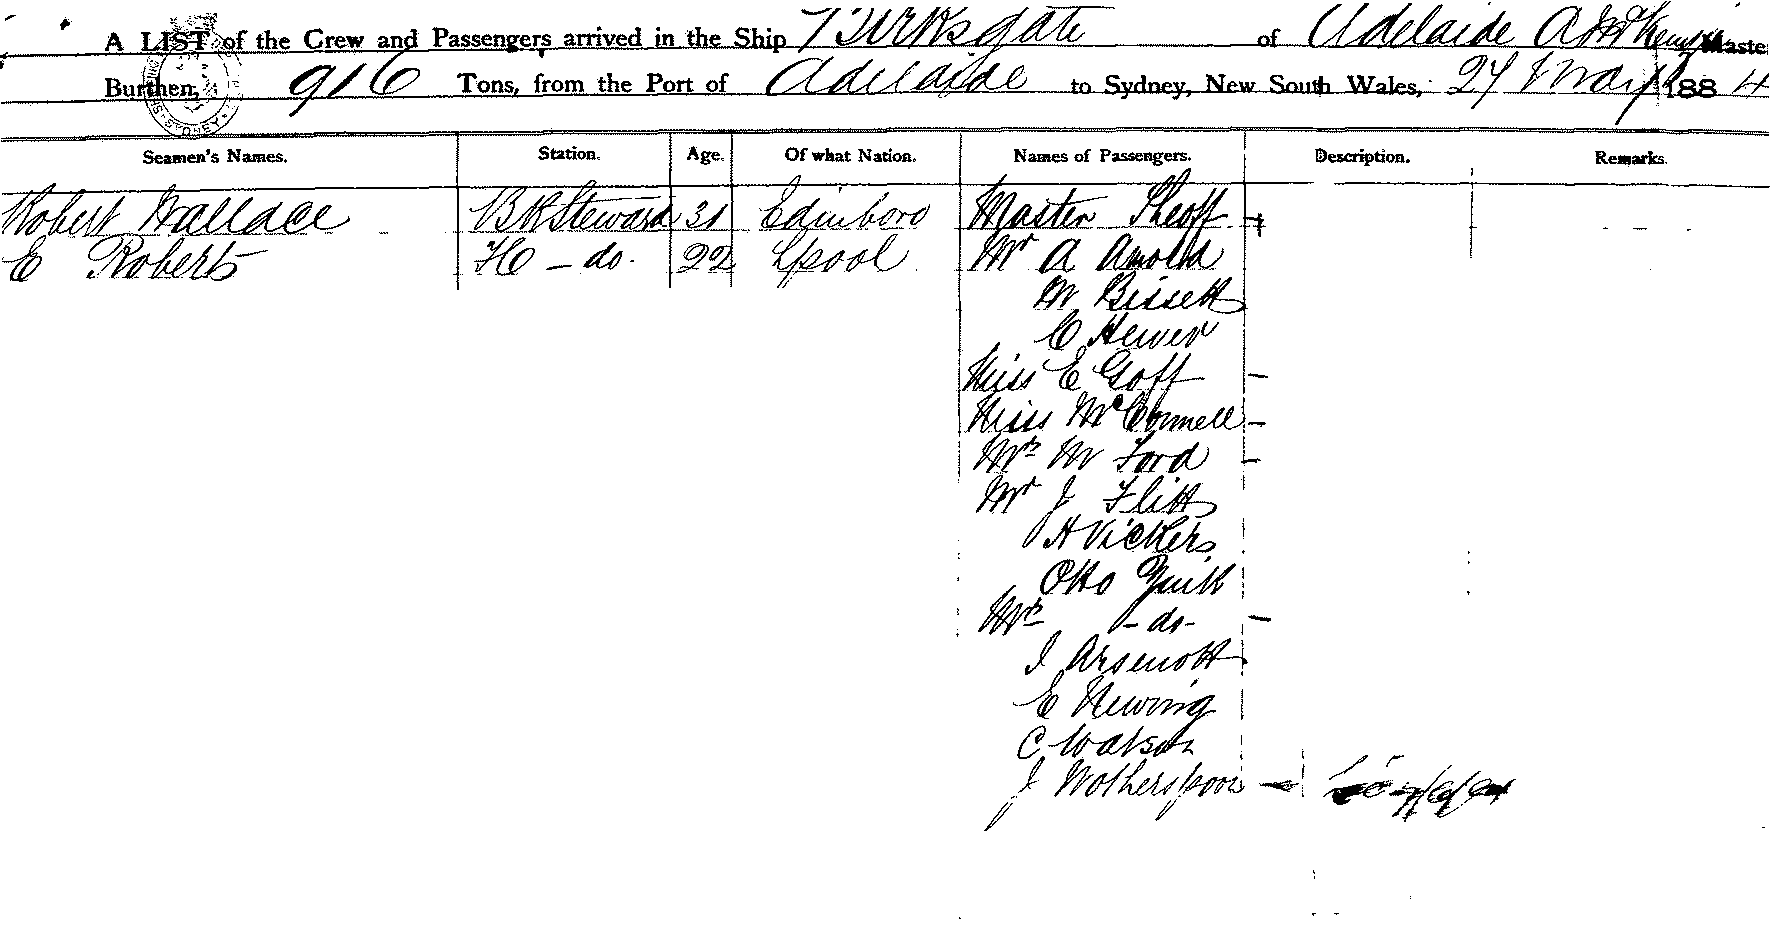 A LIST of the Crew and Passengers arrived in the Ship Birksgate of Adelaide A McKenzie Master
Burthen, 916 Tons, from the Port of Adelaide to Sydney, New South Wales, 27 May 1884
Seamen's Names. Station. Age. Of what Nation. Names of Passengers. Description. Remarks.
Robert Wallace Bk Steward 31 Edinboro Master Sheoff
E Roberts F C - do. 22 Lpool Mr A Arnold
M Bissett
C Hewer
Miss E Goff -
Miss McConnell -
Mrs M Ford -
Mr J Flitt
H Vickers
Otto
Mrs - do - -
J Arsenott
E Hewing
C Watson
J Wotherspoon -